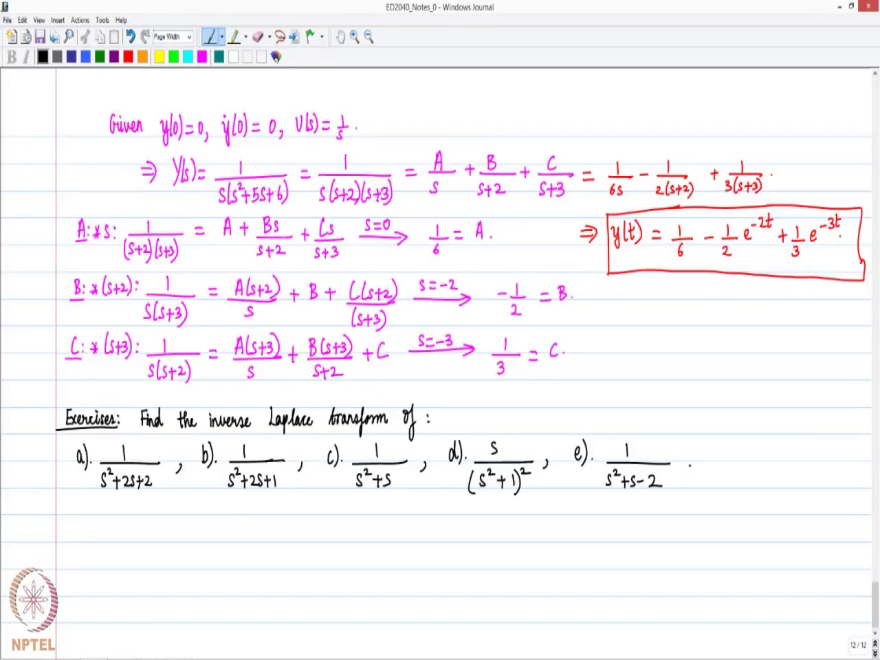 ED2040_Notes_0 - Windows Journal
File Edit View Insert Actions Tools Help
Page Width
B I
Given y(0)=0, ẏ(0)=0, U(s)=1/s.
⇒ Y(s)= 1/(s(s²+5s+6)) = 1/(s(s+2)(s+3)) = A/s + B/(s+2) + C/(s+3) = 1/(6s) − 1/(2(s+2)) + 1/(3(s+3)).
A: *s: 1/((s+2)(s+3)) = A + Bs/(s+2) + Cs/(s+3) s=0 → 1/6 = A. ⇒ y(t) = 1/6 − 1/2 e^(-2t) + 1/3 e^(-3t).
B: *(s+2): 1/(s(s+3)) = A(s+2)/s + B + C(s+2)/(s+3) s=-2 → -1/2 = B.
C: *(s+3): 1/(s(s+2)) = A(s+3)/s + B(s+3)/(s+2) + C s=-3 → 1/3 = C.
Exercises: Find the inverse Laplace transform of :
a). 1/(s²+2s+2) , b). 1/(s²+2s+1) , c). 1/(s²+s) , d). s/(s²+1)² , e). 1/(s²+s-2) .
NPTEL
12 / 12